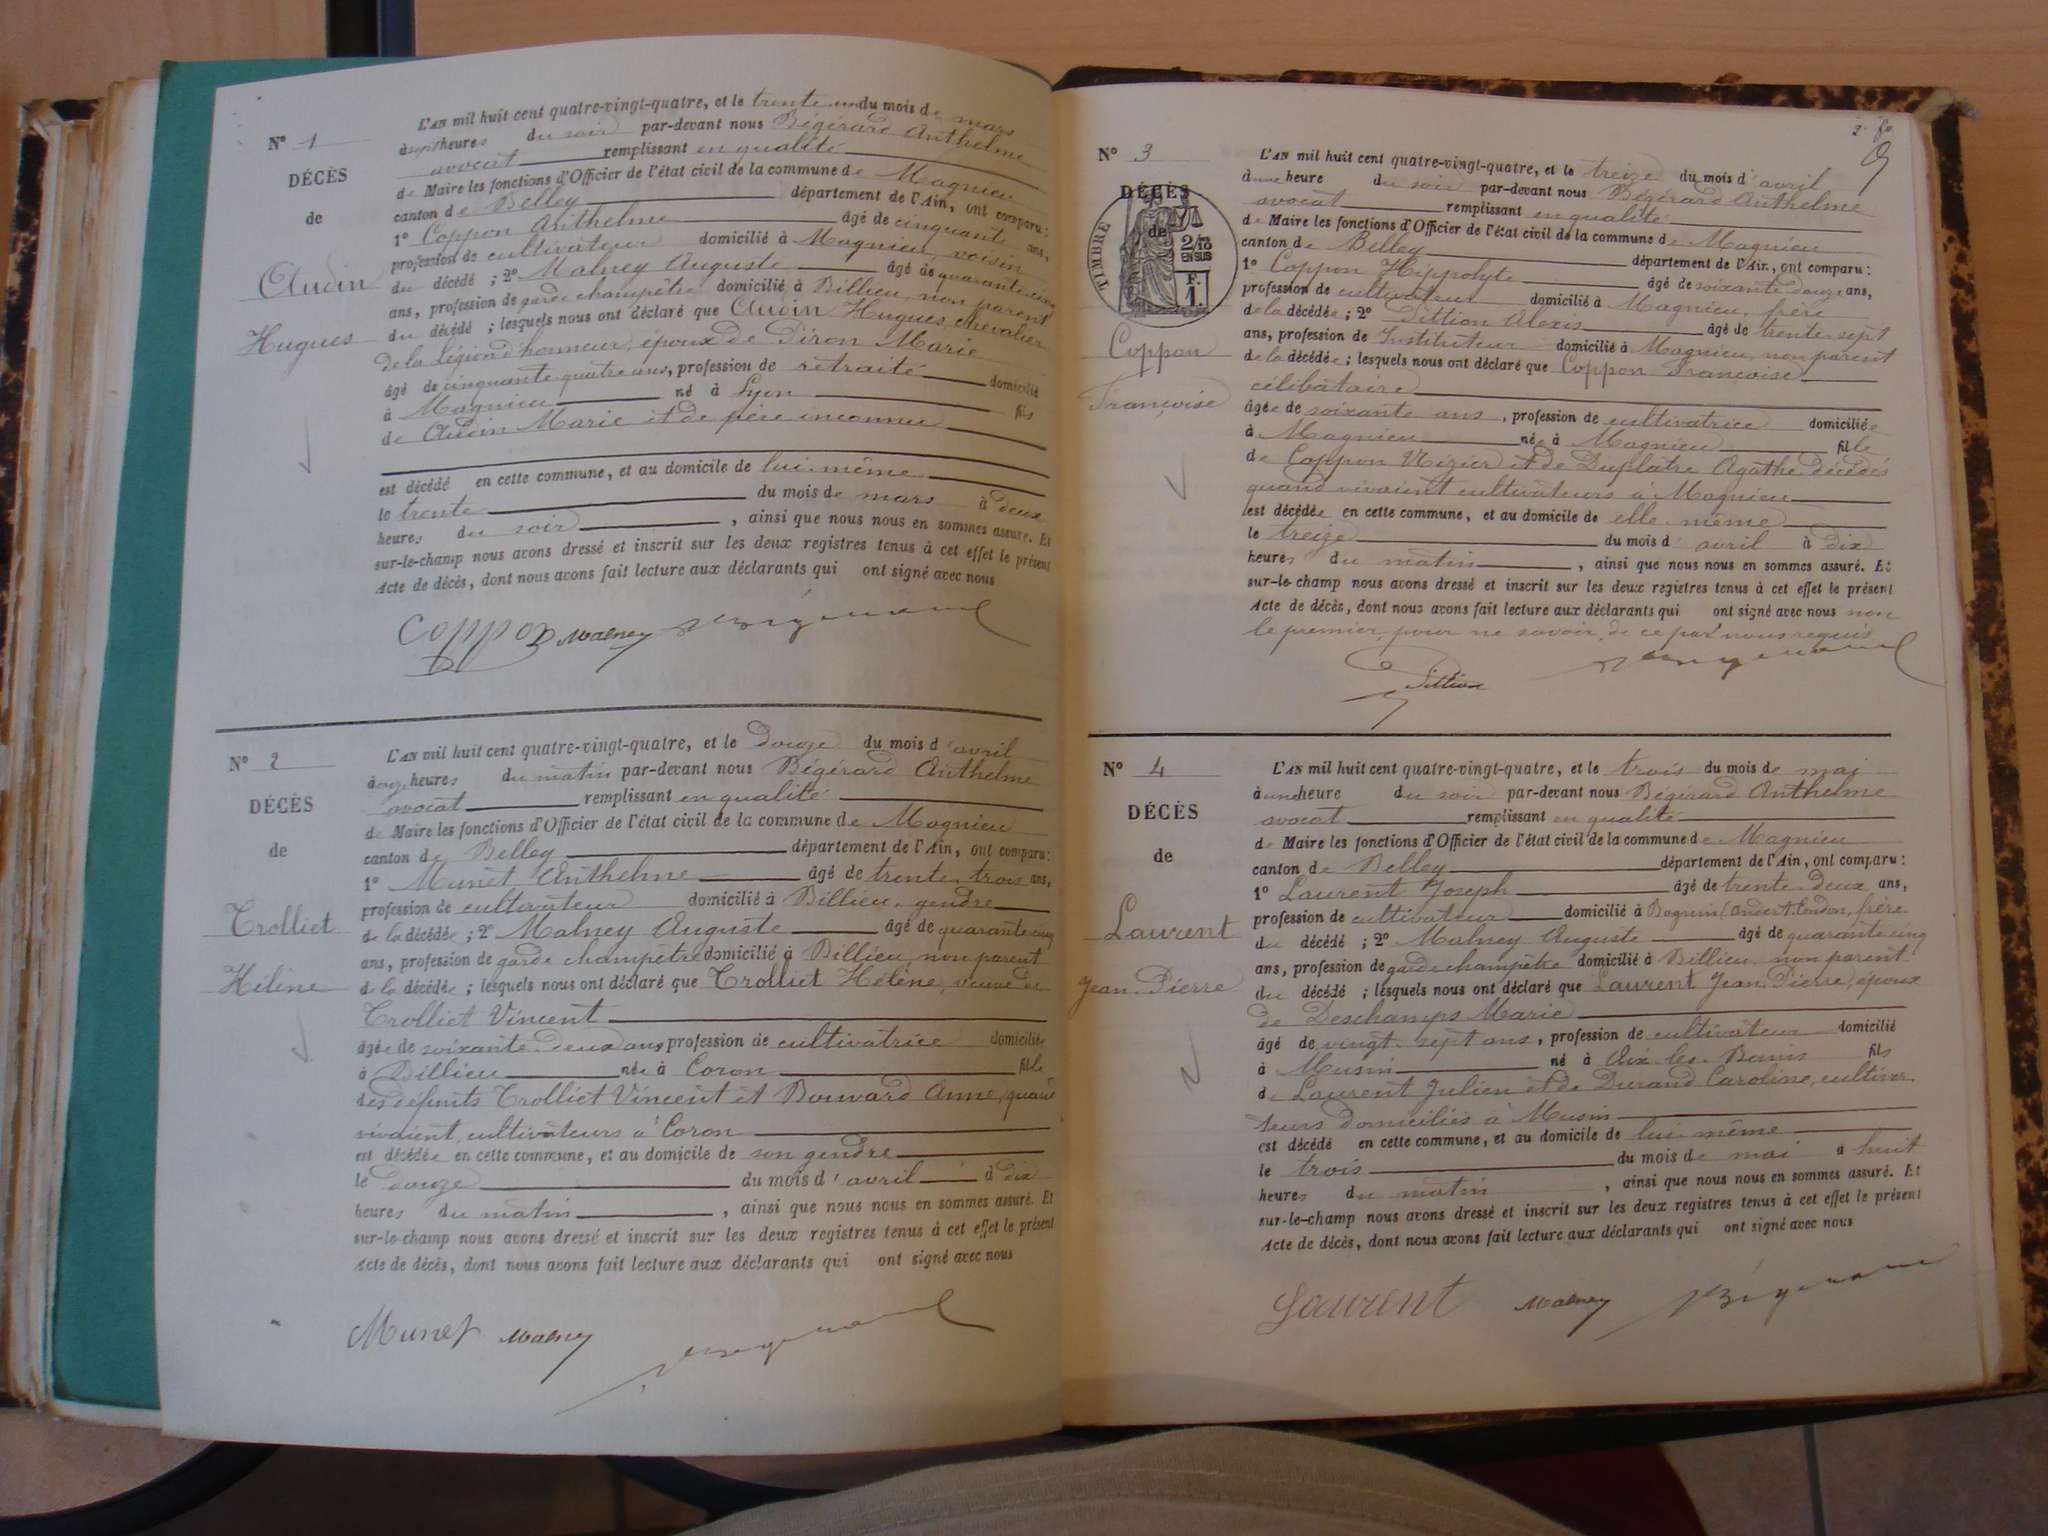 N° 1
DÉCÈS
de
Audin
Hugues
L'AN mil huit cent quatre-vingt-quatre, et le trente un du mois de mars
à sept heures du soir par-devant nous Bégérard Anthelme
avocat remplissant en qualité
de Maire les fonctions d'Officier de l'état civil de la commune de Magnieu
canton de Belley département de l'Ain, ont comparu :
1° Coppon Anthelme âgé de cinquante ans,
profession de cultivateur domicilié à Magnieu, voisin
du décédé ; 2° Malney Auguste âgé de quarante cinq
ans, profession de garde champêtre domicilié à Billieu, non parent
du décédé ; lesquels nous ont déclaré que Audin Hugues, chevalier
de la Légion d'honneur, époux de Piron Marie
âgé de cinquante quatre ans, profession de retraité domicilié
à Magnieu né à Lyon fils
de Audin Marie et de père inconnu
est décédé en cette commune, et au domicile de lui-même
le trente du mois de mars à deux
heures du soir, ainsi que nous nous en sommes assuré. Et
sur-le-champ nous avons dressé et inscrit sur les deux registres tenus à cet effet le présent
Acte de décès, dont nous avons fait lecture aux déclarants qui ont signé avec nous
Coppon Malney Bégérard
N° 2
DÉCÈS
de
Trolliet
Hélène
L'AN mil huit cent quatre-vingt-quatre, et le douze du mois d'avril
à onze heures du matin par-devant nous Bégérard Anthelme
avocat remplissant en qualité
de Maire les fonctions d'Officier de l'état civil de la commune de Magnieu
canton de Belley département de l'Ain, ont comparu :
1° Munet Anthelme âgé de trente trois ans,
profession de cultivateur domicilié à Billieu, gendre
de la décédée ; 2° Malney Auguste âgé de quarante cinq
ans, profession de garde champêtre domicilié à Billieu, non parent
de la décédée ; lesquels nous ont déclaré que Trolliet Hélène, veuve de
Trolliet Vincent
âgée de soixante deux ans, profession de cultivatrice domiciliée
à Billieu née à Coron fille
des défunts Trolliet Vincent et Bouvard Anne, quand
vivaient, cultivateurs à Coron
est décédée en cette commune, et au domicile de son gendre
le douze du mois d'avril à dix
heures du matin, ainsi que nous nous en sommes assuré. Et
sur-le-champ nous avons dressé et inscrit sur les deux registres tenus à cet effet le présent
Acte de décès, dont nous avons fait lecture aux déclarants qui ont signé avec nous
Munet Malney Bégérard
2e fo
N° 3
DÉCÈS
de
TIMBRE
2/10
EN SUS
F.
1.
Coppon
Françoise
L'AN mil huit cent quatre-vingt-quatre, et le treize du mois d'avril
à une heure du soir par-devant nous Bégérard Anthelme
avocat remplissant en qualité
de Maire les fonctions d'Officier de l'état civil de la commune de Magnieu
canton de Belley département de l'Ain, ont comparu :
1° Coppon Hippolyte âgé de soixante douze ans,
profession de cultivateur domicilié à Magnieu, frère
de la décédée ; 2° Pittion Alexis âgé de trente sept
ans, profession de Instituteur domicilié à Magnieu, non parent
de la décédée ; lesquels nous ont déclaré que Coppon Françoise
célibataire
âgée de soixante ans, profession de cultivatrice domiciliée
à Magnieu née à Magnieu fille
de Coppon Nizier et de Duplâtre Agathe décédés
quand vivaient cultivateurs à Magnieu
est décédée en cette commune, et au domicile de elle-même
le treize du mois d'avril à dix
heures du matin, ainsi que nous nous en sommes assuré. Et
sur-le-champ nous avons dressé et inscrit sur les deux registres tenus à cet effet le présent
Acte de décès, dont nous avons fait lecture aux déclarants qui ont signé avec nous non
le premier, pour ne savoir, de ce par nous requis
Pittion Bégérard
N° 4
DÉCÈS
de
Laurent
Jean-Pierre
L'AN mil huit cent quatre-vingt-quatre, et le trois du mois de mai
à une heure du soir par-devant nous Bégérard Anthelme
avocat remplissant en qualité
de Maire les fonctions d'Officier de l'état civil de la commune de Magnieu
canton de Belley département de l'Ain, ont comparu :
1° Laurent Joseph âgé de trente-deux ans,
profession de cultivateur domicilié à Andert-Condon, frère
du décédé ; 2° Malney Auguste âgé de quarante cinq
ans, profession de garde champêtre domicilié à Billieu, non parent
du décédé ; lesquels nous ont déclaré que Laurent Jean-Pierre, époux
de Deschamps Marie
âgé de vingt-sept ans, profession de cultivateur domicilié
à Musin né à Aix-les-Bains fils
de Laurent Julien et de Durand Caroline, cultiva-
teurs domiciliés à Musin
est décédé en cette commune, et au domicile de lui-même
le trois du mois de mai à huit
heures du matin, ainsi que nous nous en sommes assuré. Et
sur-le-champ nous avons dressé et inscrit sur les deux registres tenus à cet effet le présent
Acte de décès, dont nous avons fait lecture aux déclarants qui ont signé avec nous
Laurent Malney Bégérard